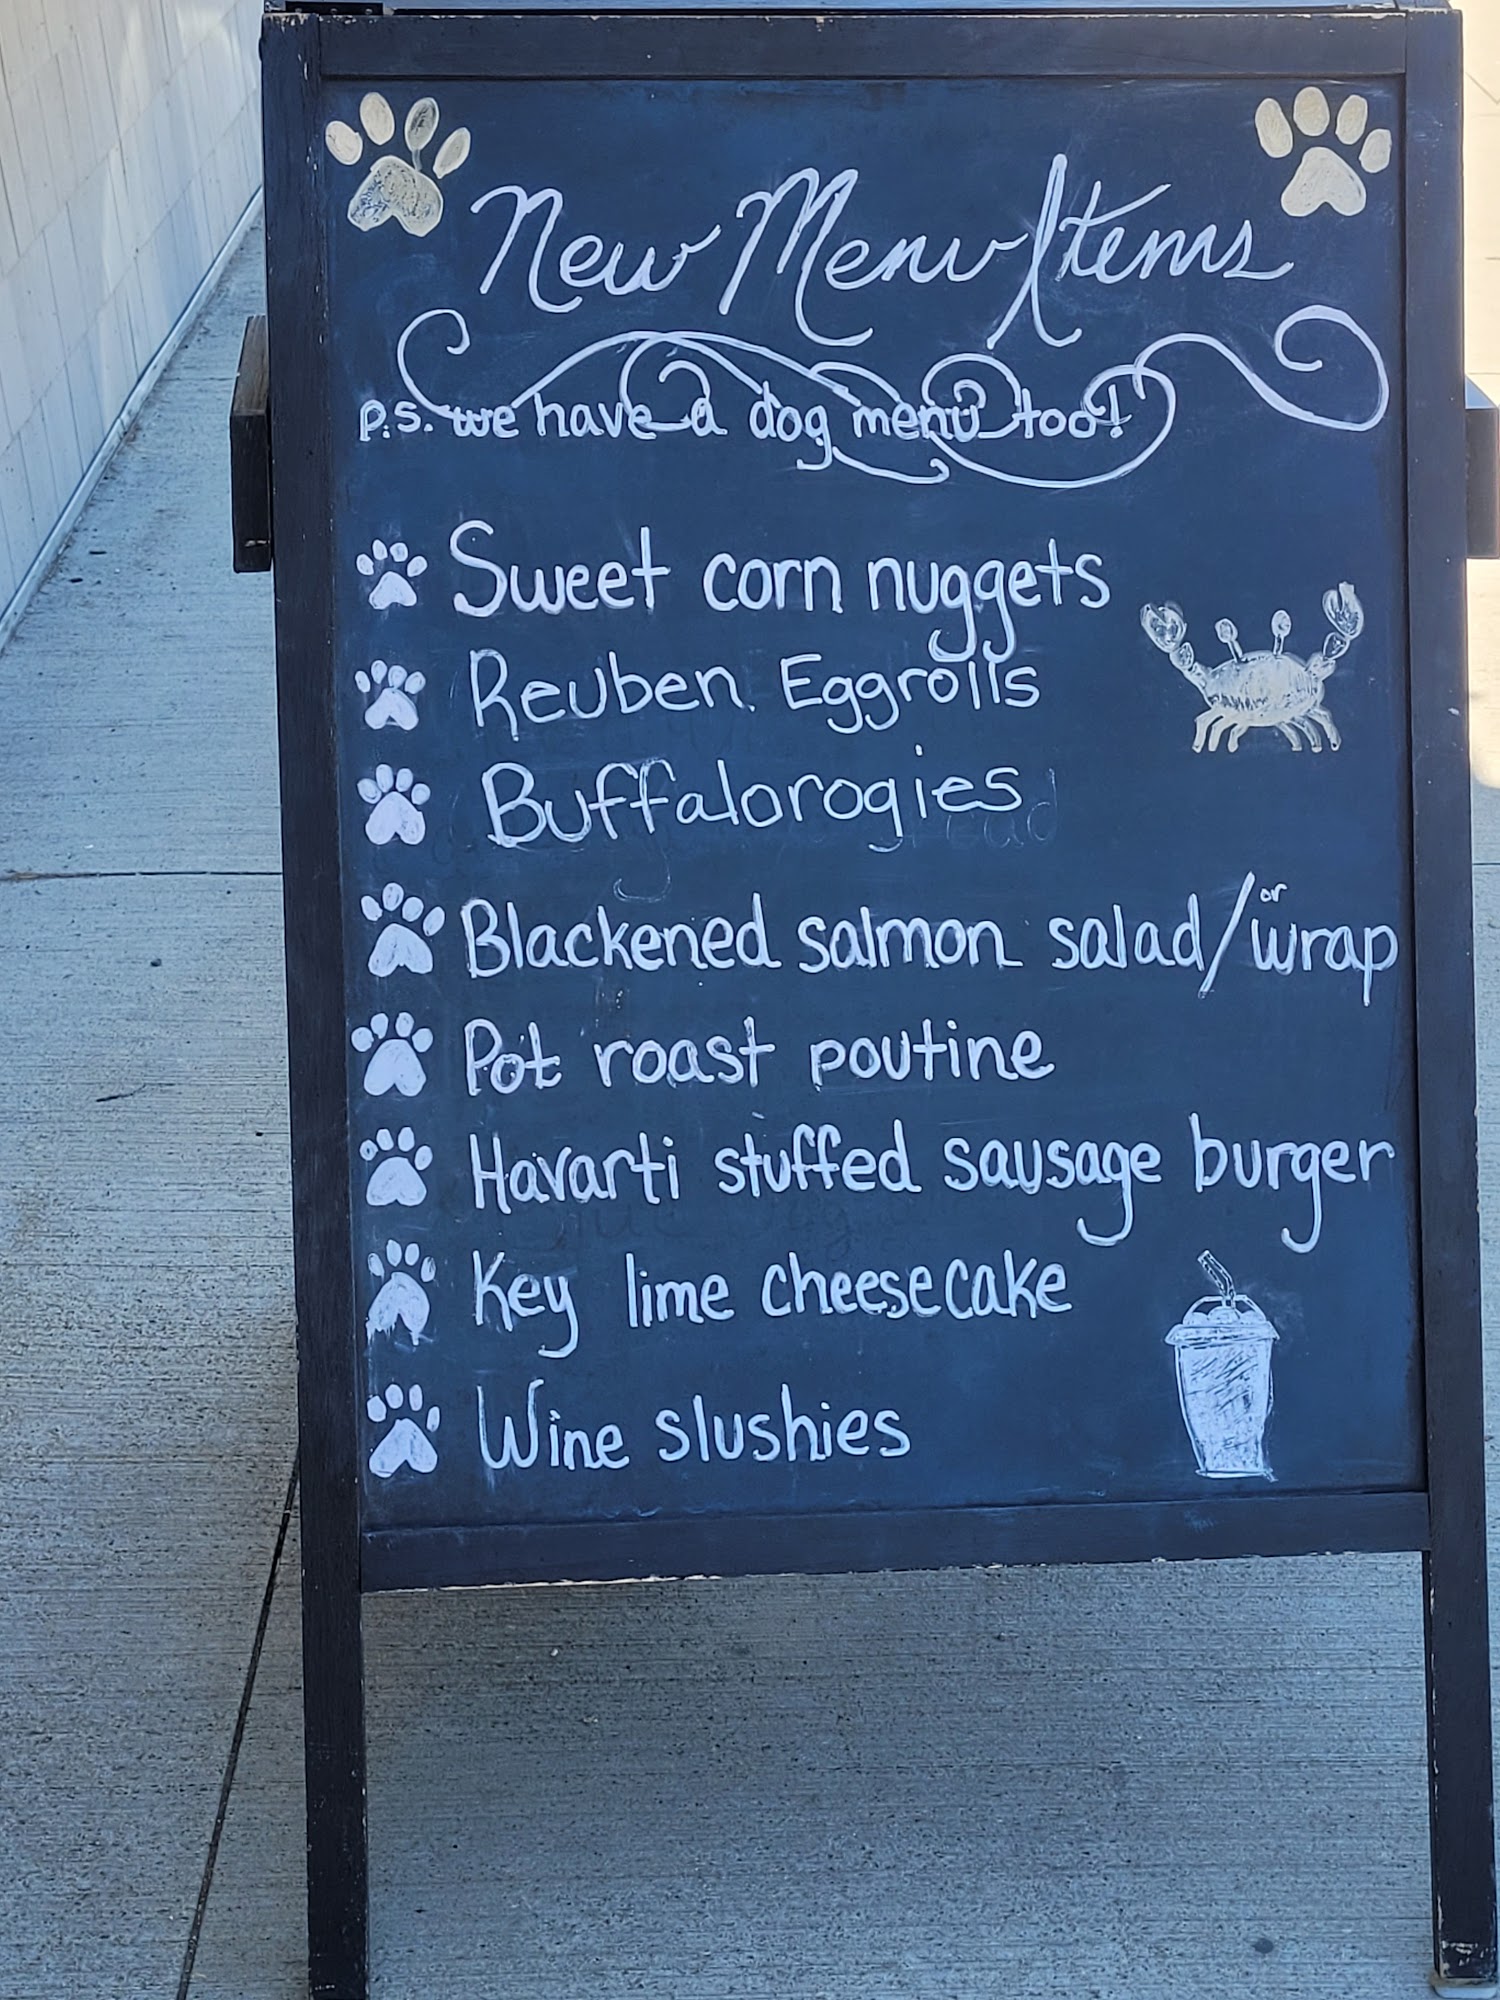 New Menu Items
p.s. we have a dog menu too!
Sweet corn nuggets
Reuben Eggrolls
Buffalorogies
Blackened salmon salad/or wrap
Pot roast poutine
Havarti stuffed sausage burger
Key lime cheesecake
Wine slushies